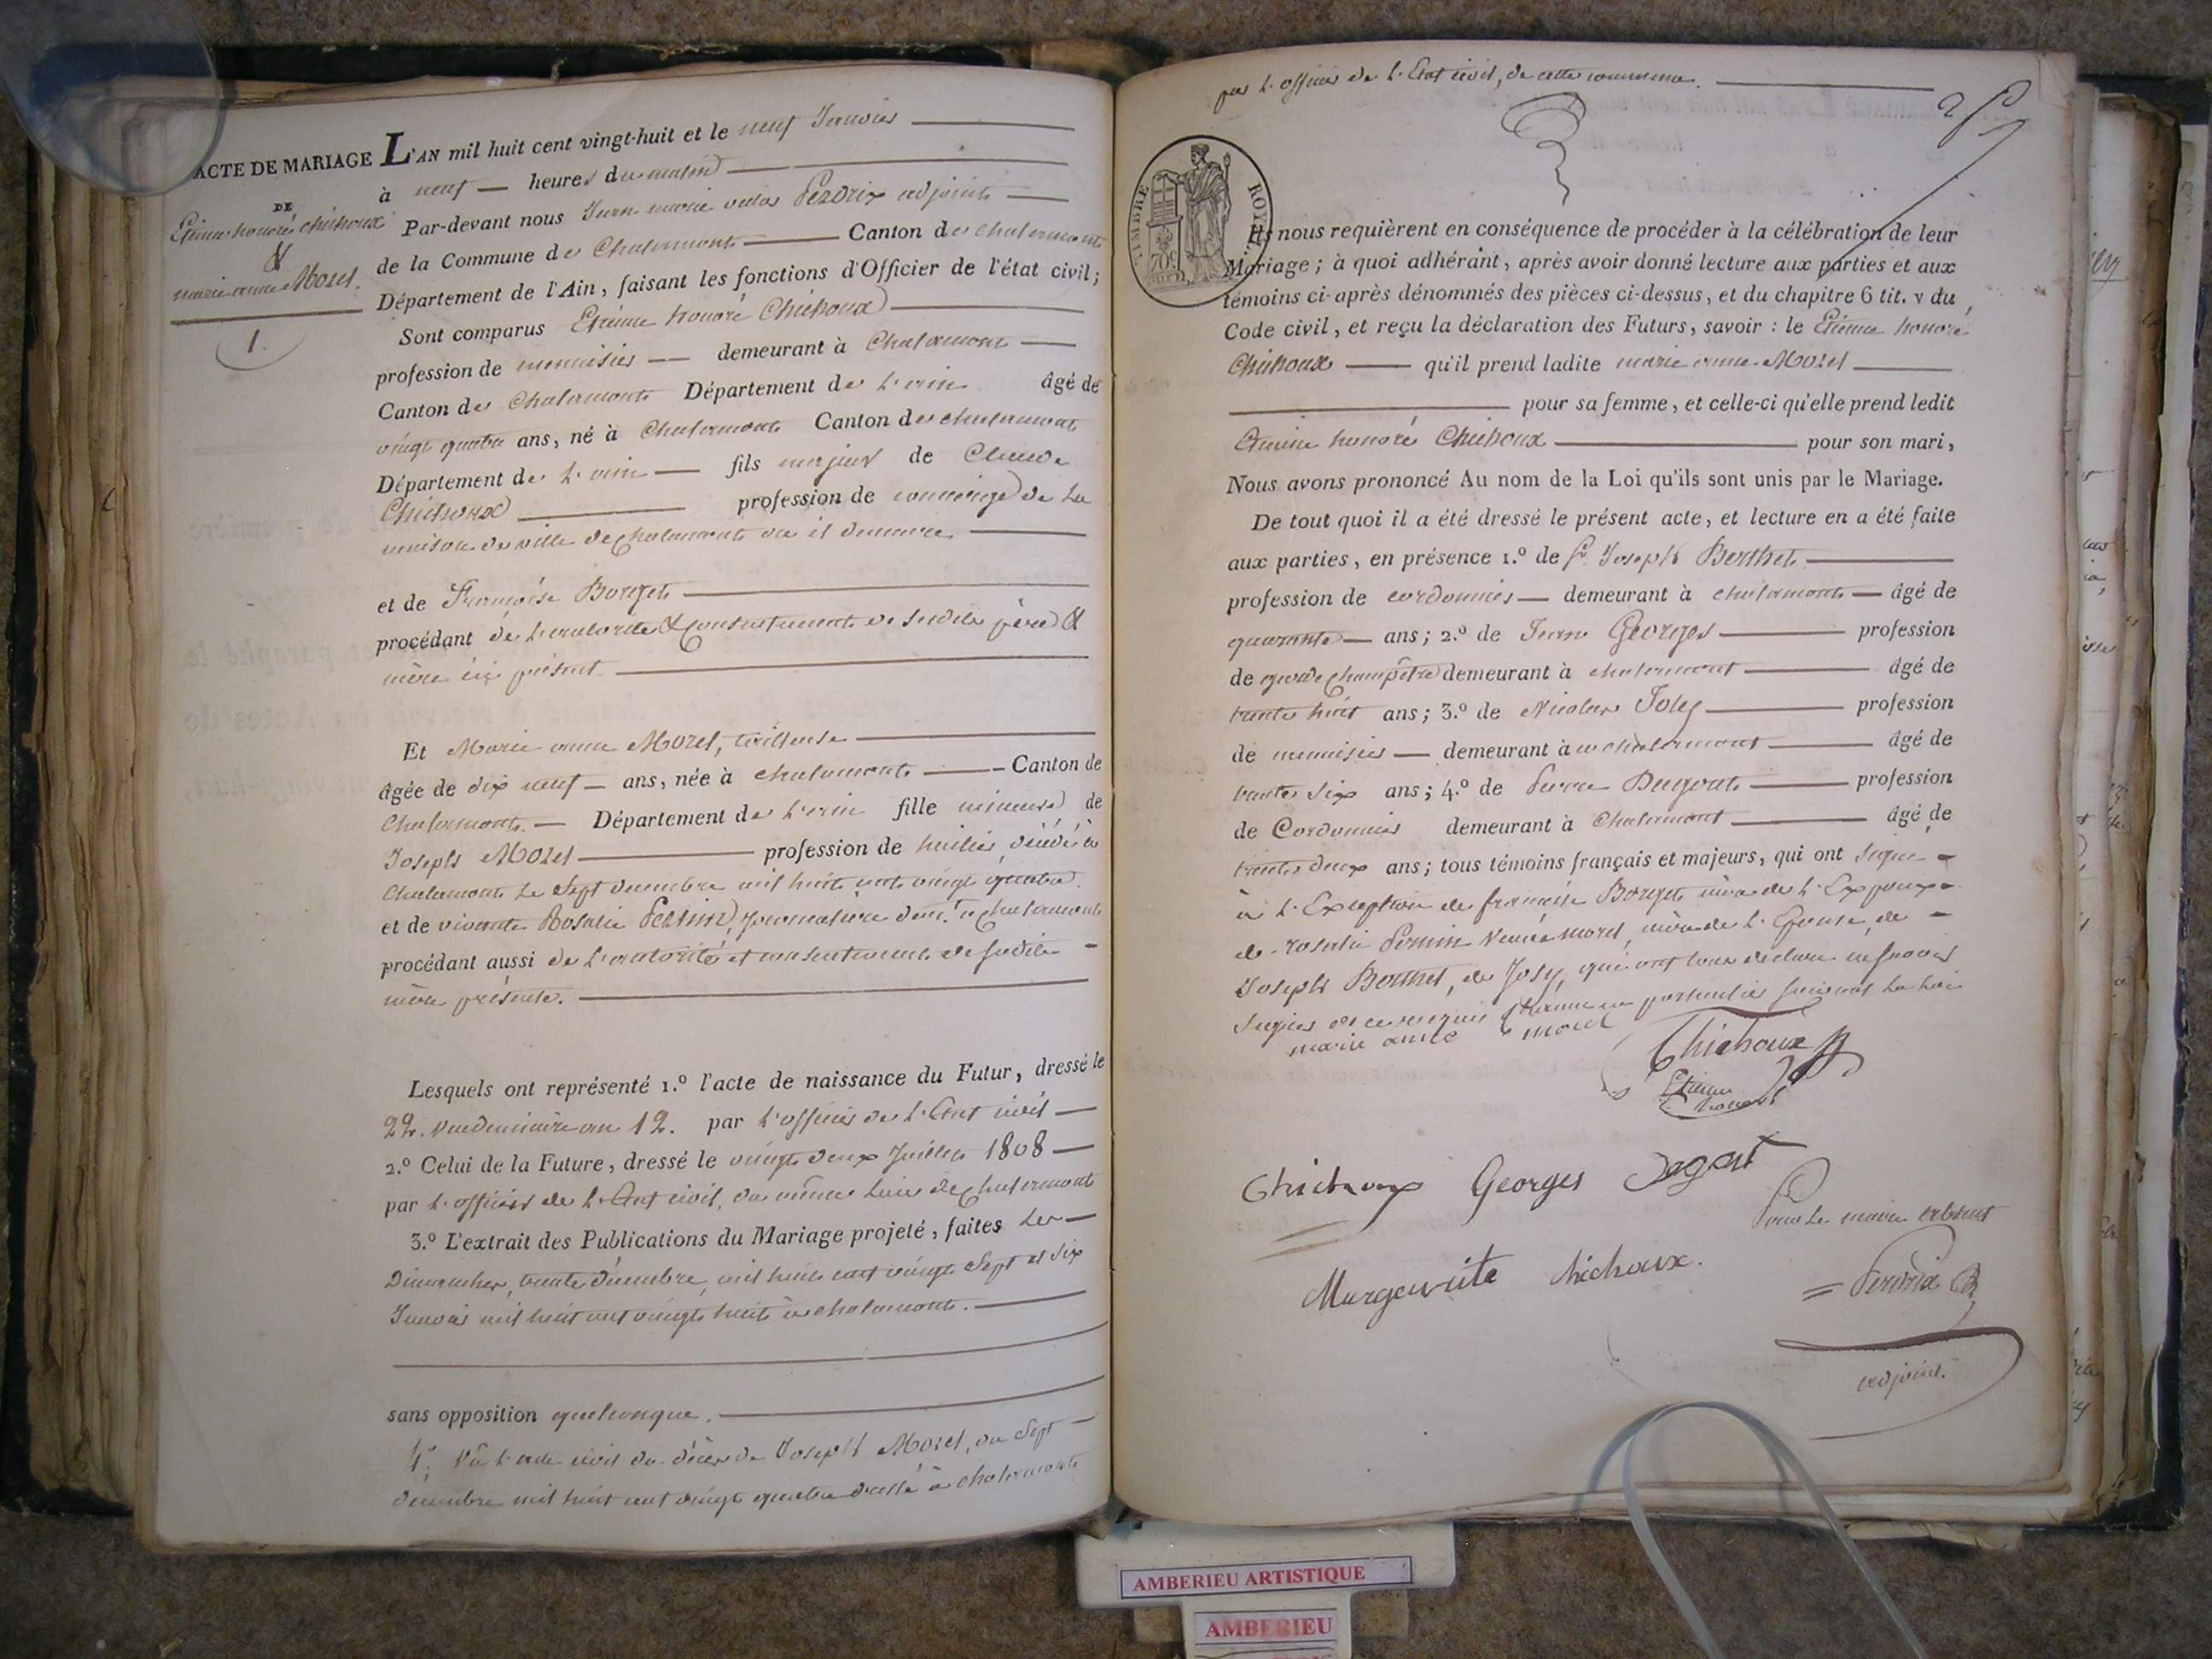 ACTE DE MARIAGE
DE
Etienne honoré Chichoux
&
marie anne Morel.
1.
L'AN mil huit cent vingt-huit et le neuf Janvier
à neuf heures du matin
Par-devant nous Jean marie Perdrix adjoint
de la Commune de Chalamont Canton de chalamont
Département de l'Ain, faisant les fonctions d'Officier de l'état civil;
Sont comparus Etienne honoré Chichoux
profession de menuisier demeurant à Chalamont
Canton de Chalamont Département de l'ain âgé de
vingt quatre ans, né à Chalamont Canton de chalamont
Département de l'ain fils majeur de Claude
Chichoux profession de concierge de la
maison de ville de chalamont où il demeure
et de Françoise Borget
procédant de l'autorité & consentement de sesdits père &
mère ici présent.
Et Marie anne Morel, tailleuse
âgée de dix neuf ans, née à chalamont Canton de
Chalamont. Département de l'ain fille mineure de
Joseph Morel profession de huilier, décédé à
Chalamont le sept decembre mil huit cent vingt quatre.
et de vivante Rosalie Perrin, journalière dem.t à chalamont
procédant aussi de l'autorité et consentement de sadite
mère présente.
Lesquels ont représenté 1.º l'acte de naissance du Futur, dressé le
22. vendemiaire an 12. par l'officier de l'Etat civil
2.º Celui de la Future, dressé le vingt deux Juillet 1808
par l'officier de l'Etat civil, du même lieu de chalamont
3.º L'extrait des Publications du Mariage projeté, faites les
Dimanches, trente décembre, mil huit cent vingt sept et six
Janvier mil huit cent vingt huit à chalamont.
sans opposition quelconque.
4.º Vû l'acte civil du décès de Joseph Morel, du sept
decembre mil huit cent vingt quatre dressé à chalamont
par l'officier de l'Etat civil, de cette commune.
2
TIMBRE ROYAL
70c
Ils nous requièrent en conséquence de procéder à la célébration de leur
Mariage; à quoi adhérant, après avoir donné lecture aux parties et aux
témoins ci-après dénommés des pièces ci-dessus, et du chapitre 6 tit. v du
Code civil, et reçu la déclaration des Futurs, savoir : le Etienne honoré
Chichoux qu'il prend ladite marie anne Morel
pour sa femme, et celle-ci qu'elle prend ledit
Etienne honoré Chichoux pour son mari,
Nous avons prononcé Au nom de la Loi qu'ils sont unis par le Mariage.
De tout quoi il a été dressé le présent acte, et lecture en a été faite
aux parties, en présence 1.º de Sr. Joseph Berthet
profession de cordonnier demeurant à chalamont âgé de
quarante ans; 2.º de Jean Georges profession
de garde champêtre demeurant à chalamont âgé de
trente huit ans; 3.º de Nicolas Joly profession
de menuisier demeurant à chalamont âgé de
trente six ans; 4.º de Pierre Dagout profession
de Cordonnier demeurant à Chalamont âgé de
trente deux ans; tous témoins français et majeurs, qui ont signé
à l'Exception de françoise Borget mère de l'Expoux
de rosalie Perrin veuve morel, mère de l'Epouse, de
Joseph Berthet, de Joly, qui ont tous declaré ne savoir
signer de ce requis suivant la loi
marie anne morel
Chichoux
Etienne
honoré
Chichoux Georges Dagout
Pour le maire absent
Marguerite chichoux.
Perdrix
adjoint.
AMBERIEU ARTISTIQUE
AMBERIEU